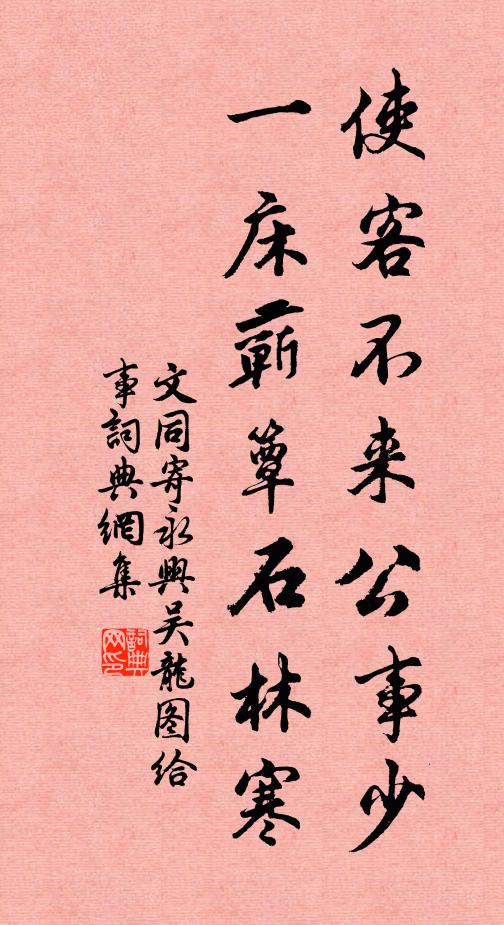 使客不来公事少
一床蕲簟石林寒
文同寄永興吴龍图给
事詞典網集
詞典网印